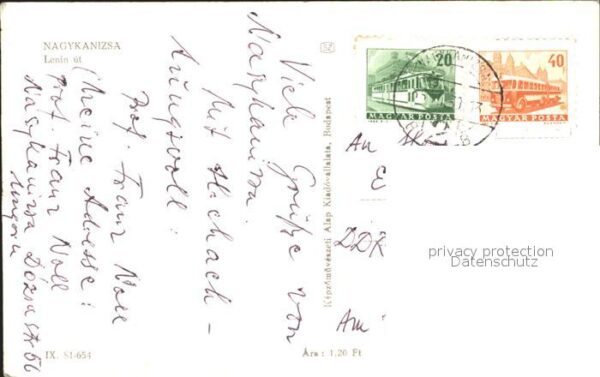 NAGYKANIZSA
Lenin út
Viele Grüße von
Naszkanizsa.
Mit Hochach-
tungsvoll:
Prof. Franz Noll
(Meine Adresse:
Prof. Franz Noll
Nagykanizsa Dózsa
Ungarn
IX. 81-654
Ára: 1.20 Ft
Képzőművészeti Alap Kiadóvállalata, Budapest
20
MAGYAR POSTA
40
MAGYAR POSTA
An
E
DDR
Am
privacy protection
Datenschutz